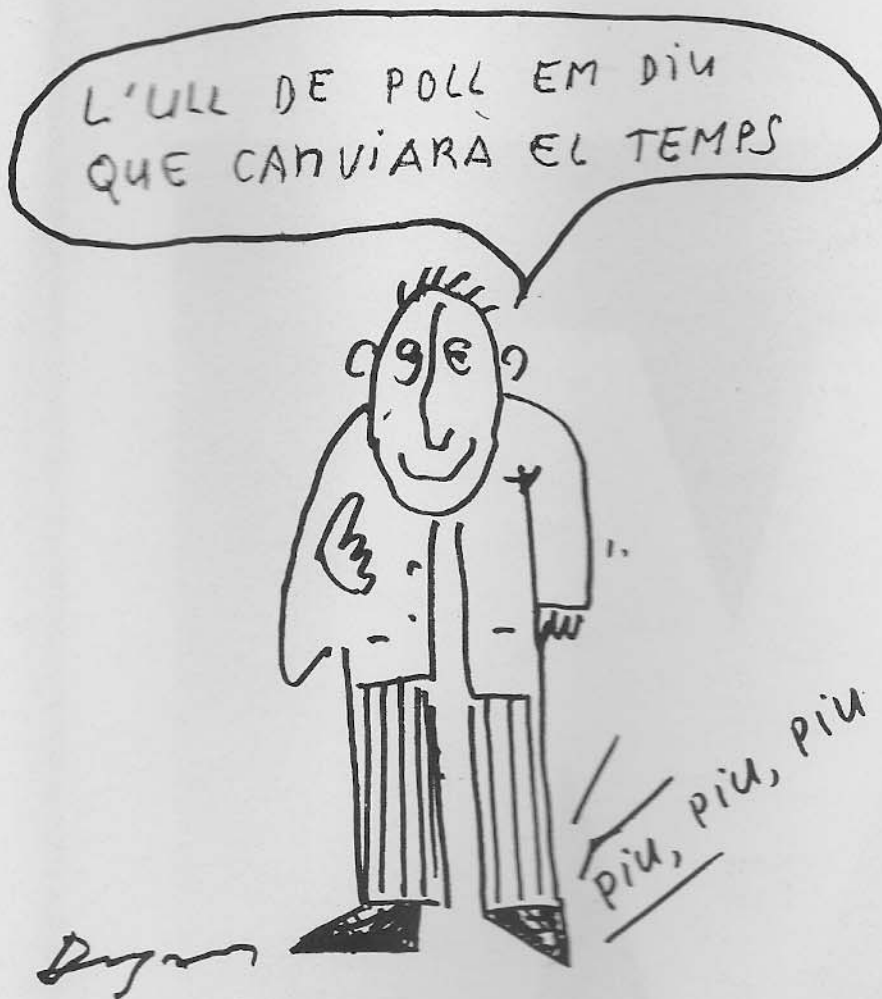 L'ULL DE POLL EM DiU
QUE CANViARÀ EL TEMPS
PiU, PiU, PiU